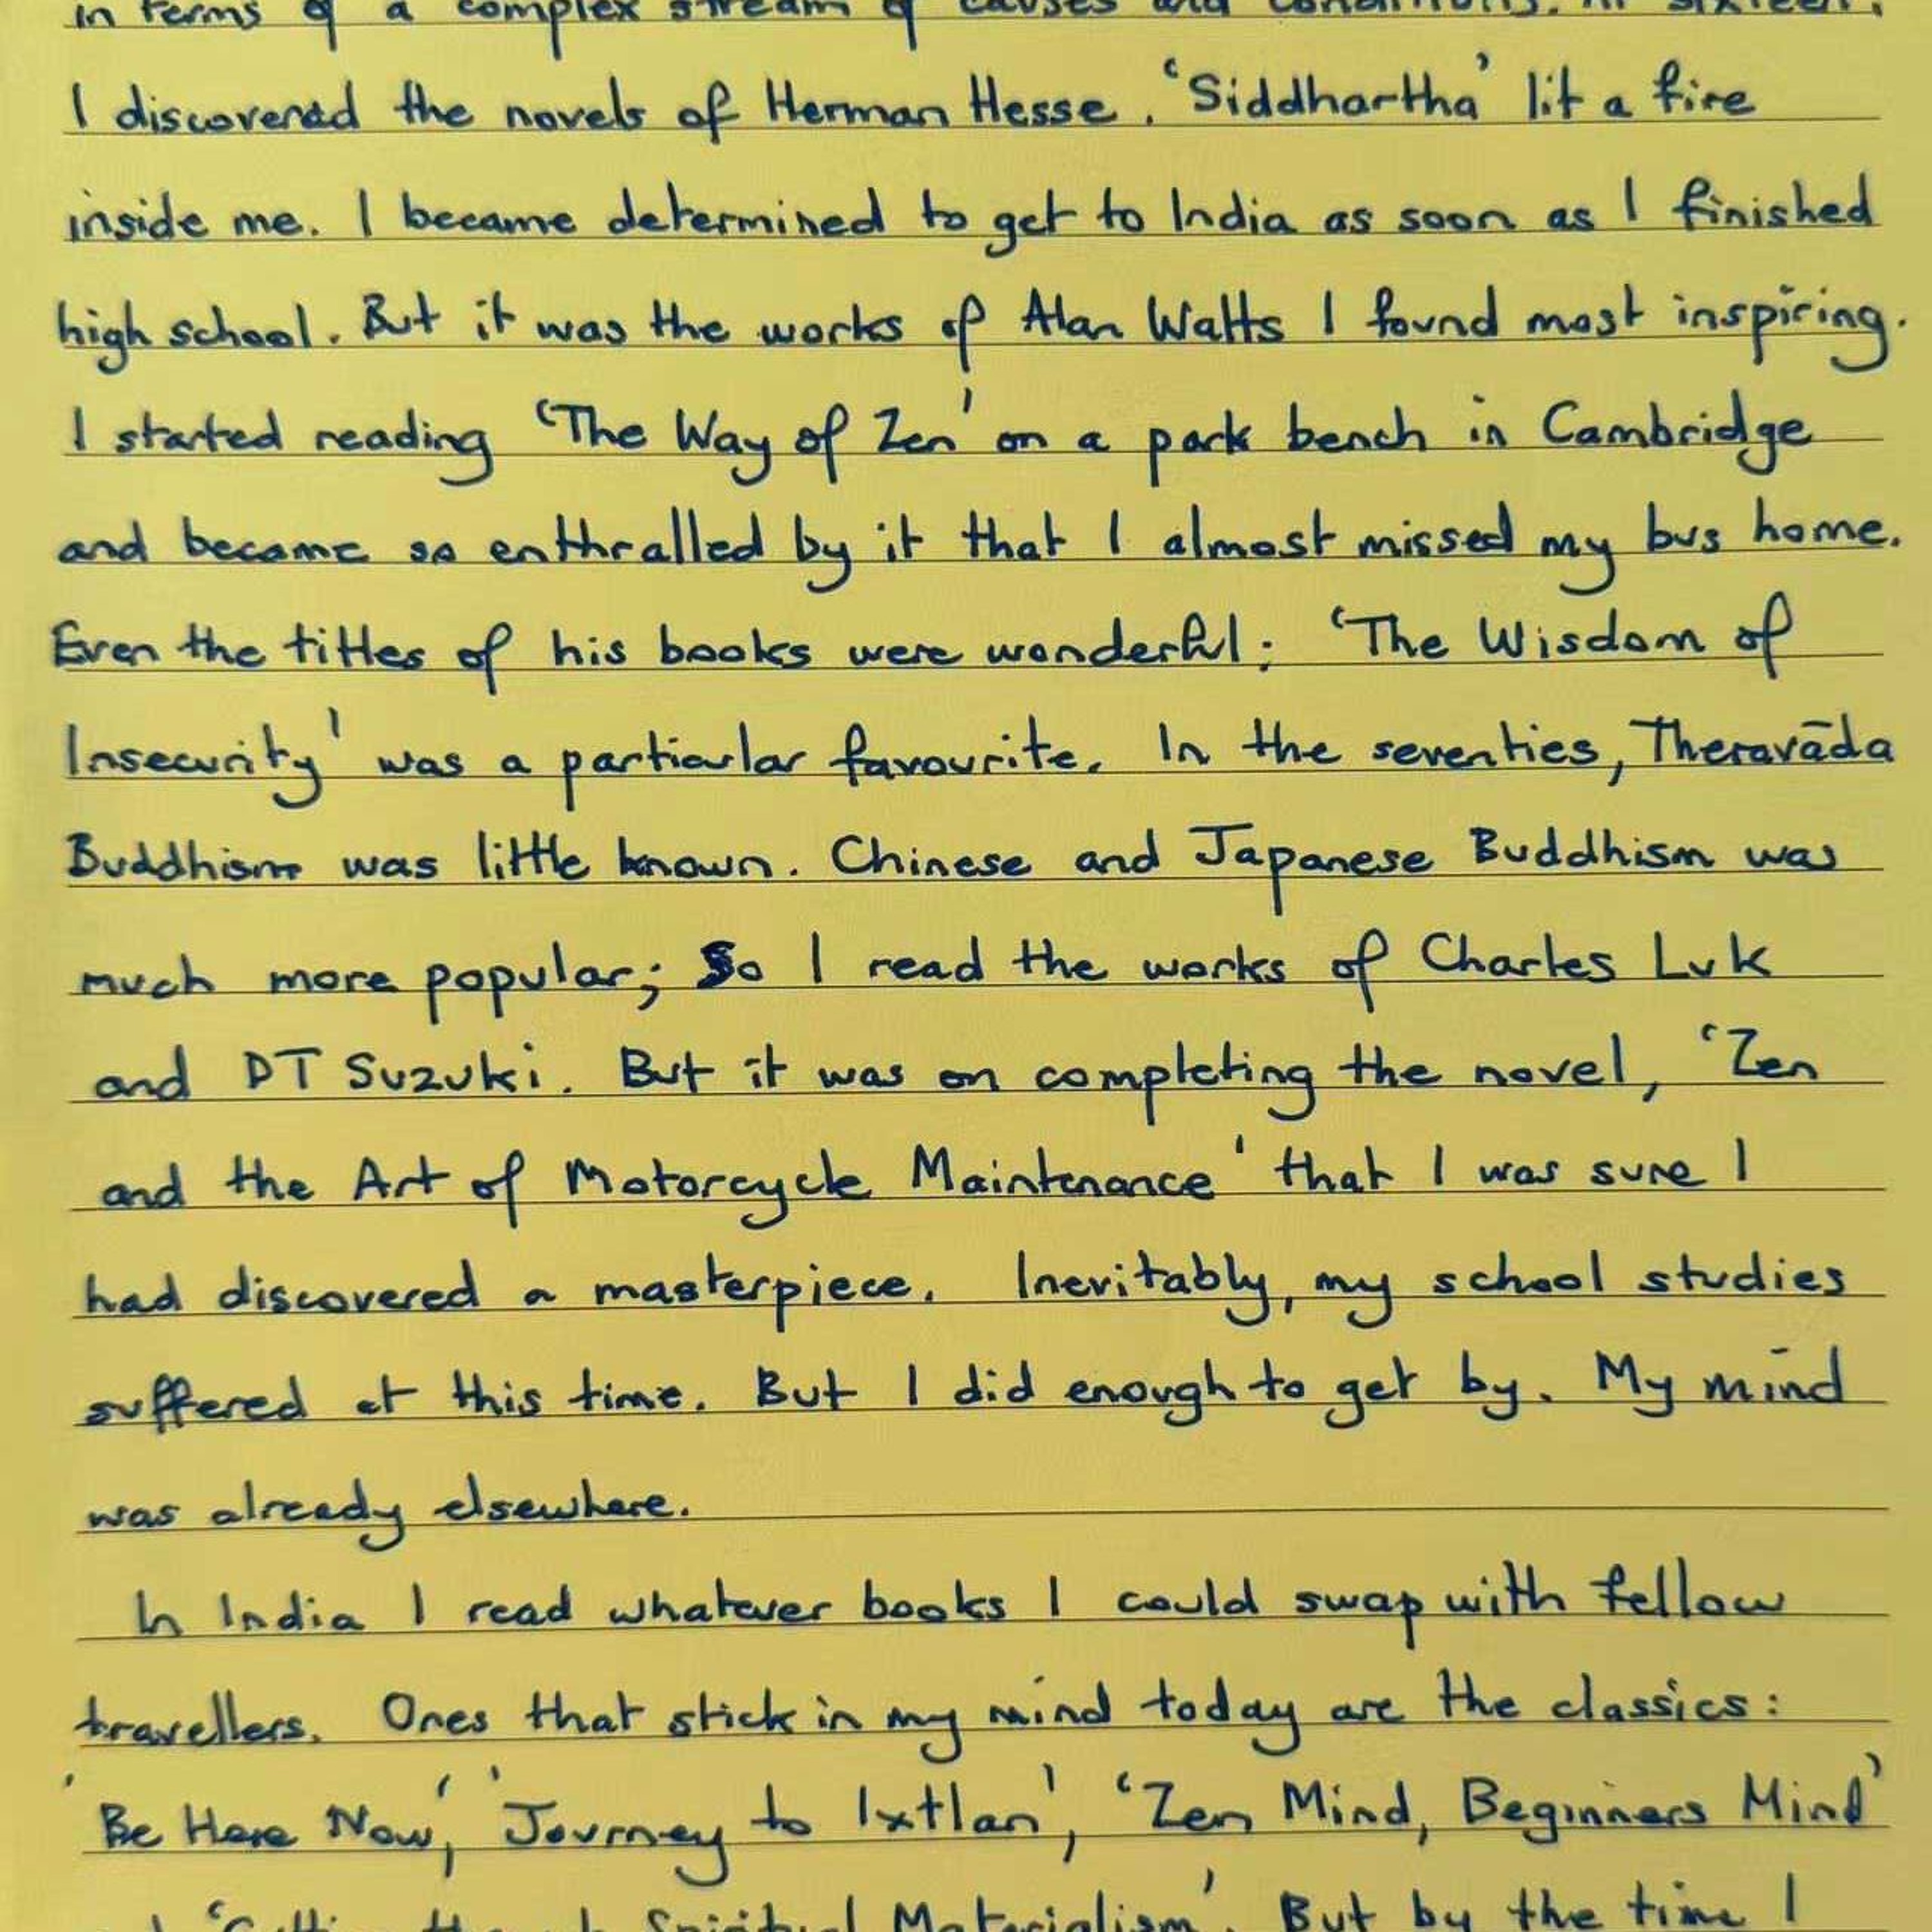 in terms of a complex stream of causes and conditions. At sixteen,
I discovered the novels of Herman Hesse. 'Siddhartha' lit a fire
inside me. I became determined to get to India as soon as I finished
high school. But it was the works of Alan Watts I found most inspiring.
I started reading 'The Way of Zen' on a park bench in Cambridge
and became so enthralled by it that I almost missed my bus home.
Even the titles of his books were wonderful: 'The Wisdom of
Insecurity' was a particular favourite. In the seventies, Theravāda
Buddhism was little known. Chinese and Japanese Buddhism was
much more popular; So I read the works of Charles Luk
and DT Suzuki. But it was on completing the novel, 'Zen
and the Art of Motorcycle Maintenance' that I was sure I
had discovered a masterpiece. Inevitably, my school studies
suffered at this time. But I did enough to get by. My mind
was already elsewhere.
In India I read whatever books I could swap with fellow
travellers. Ones that stick in my mind today are the classics:
'Be Here Now', 'Journey to Ixtlan', 'Zen Mind, Beginners Mind'
and 'Cutting through Spiritual Materialism'. But by the time I